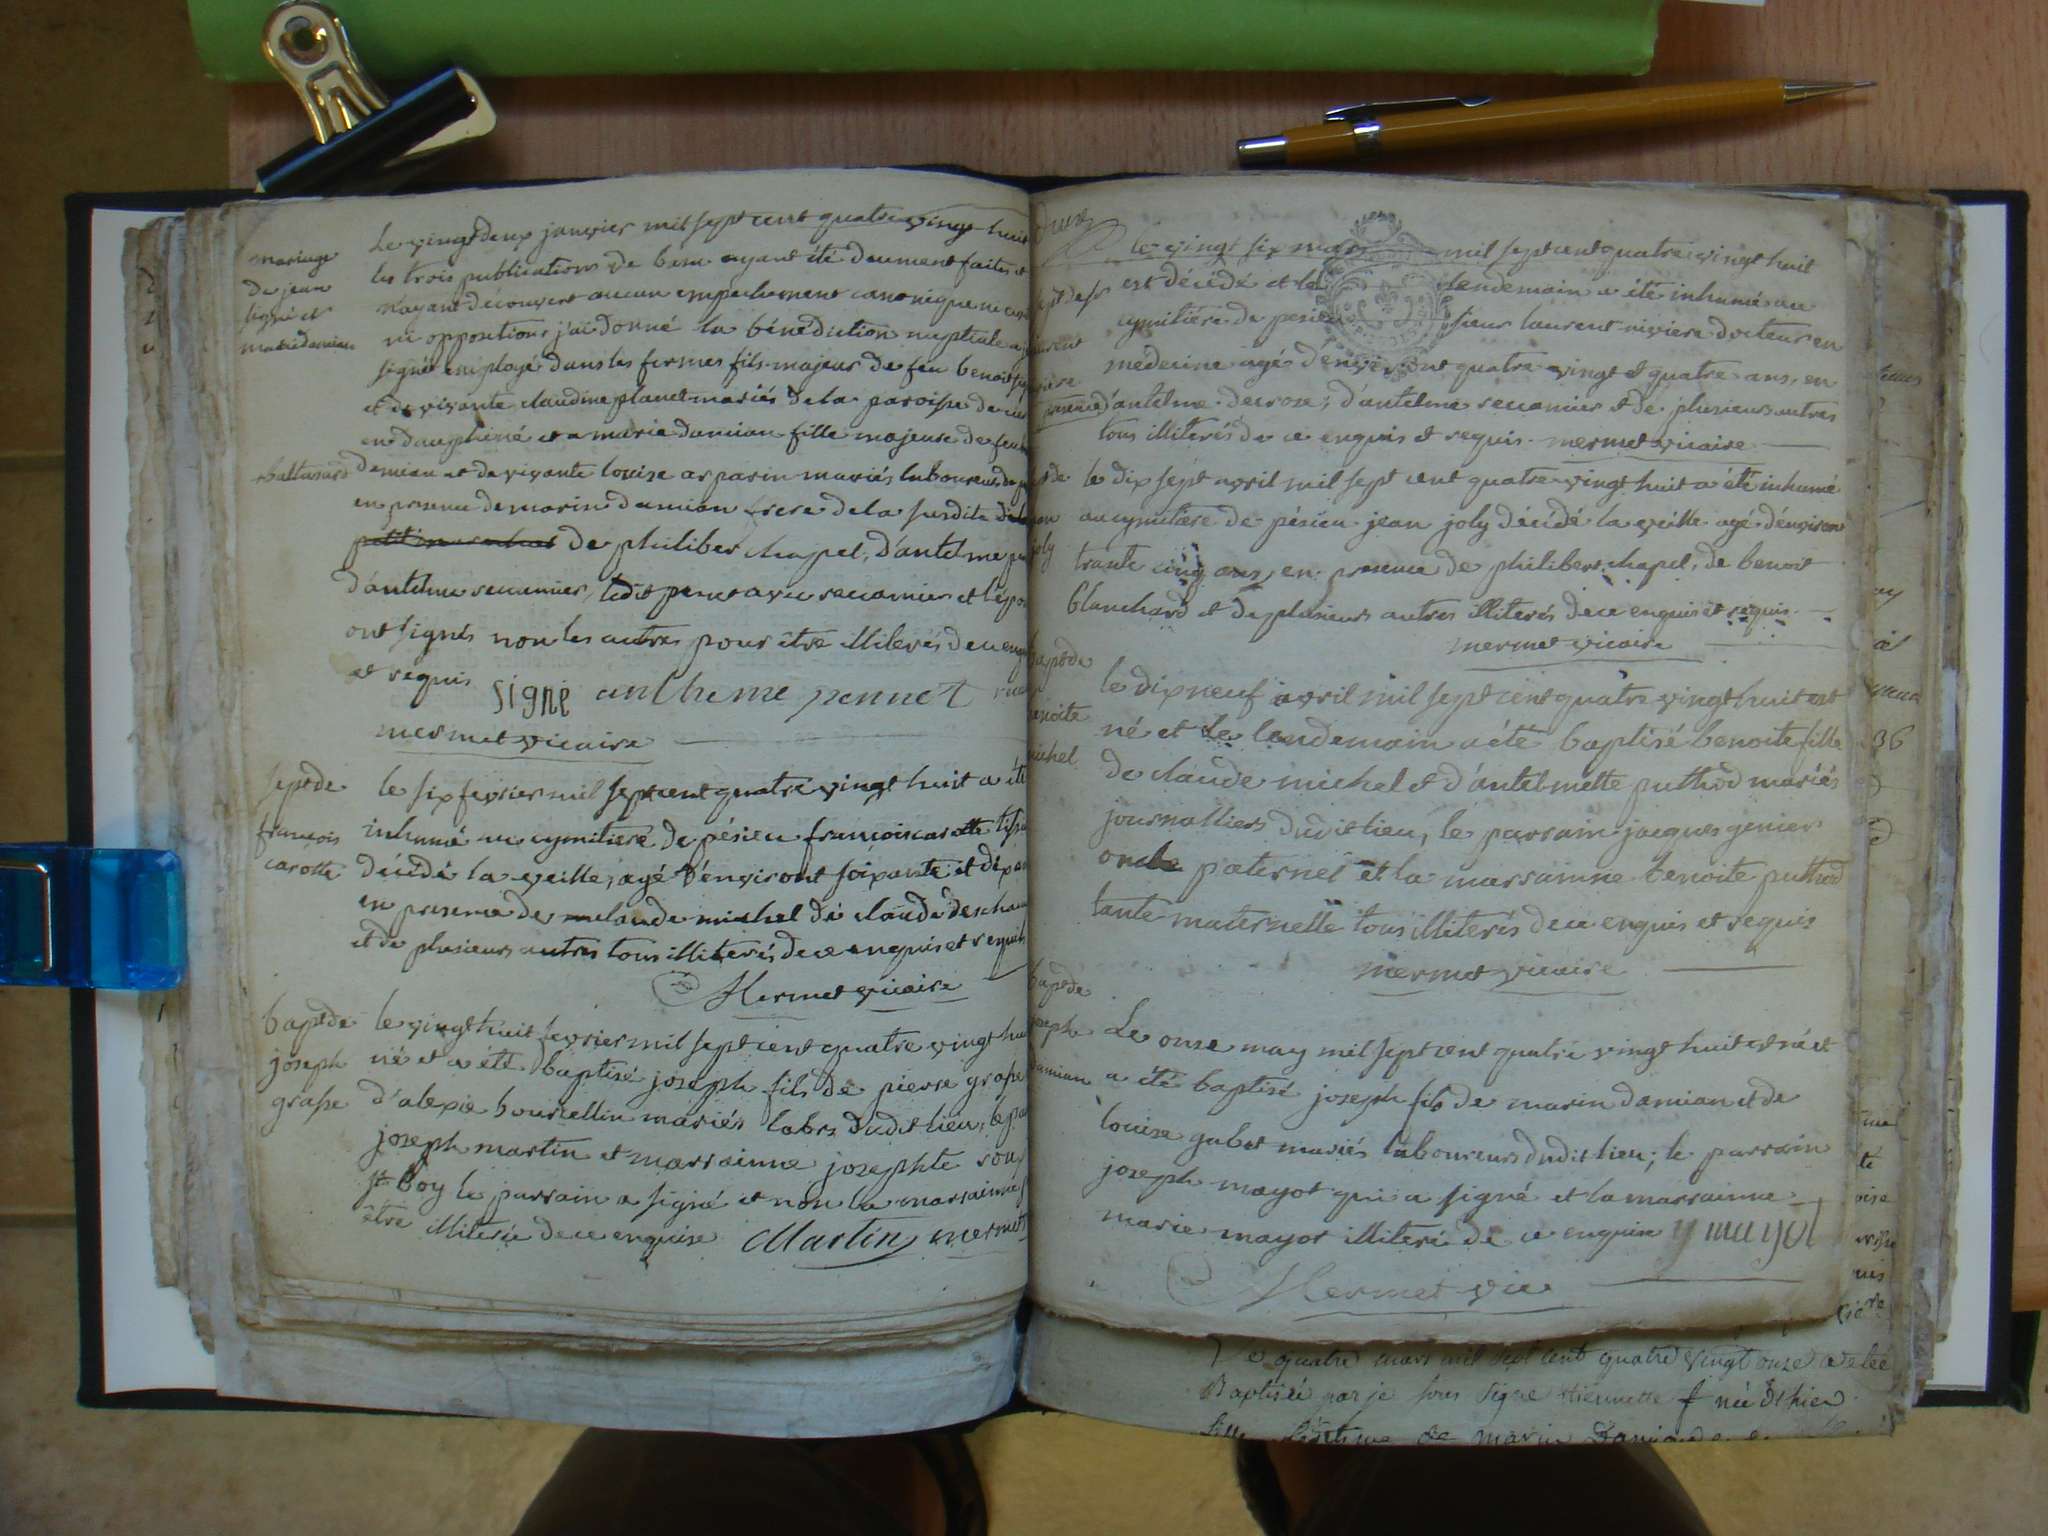 mariage
de jean
signé et
marie damian
Le vingt deux janvier mil sept cent quatre vingt huit
les trois publications de bans ayant été deument faites et
n'ayant découvert aucun empechement canonique ni
ni opposition, j'ai donné la bénédiction nuptiale a
signé employé dans les fermes fils majeur de feu benoit
et de vivante claudine planet mariés de la paroisse de
en dauphiné et a marie damian fille majeure de feu
baltasard
damian et de vivante louise asparin mariés laboureurs du
en presence de marin damian frere de la susdite
de philiber chapel, d'antelme
d'antelme recamier, ledit penet avec recamier et l'
ont signés non les autres pour être illiterés de ce
et requis signé antheme pennet
mermet vicaire
sept de
françois
carotte
le six fevrier mil sept cent quatre vingt huit a été
inhumé au cymitiere de pésieu francois carotte
décédé la veille, agé d'environt soixante et dix
en presence de claude michel de claude
et de plusieurs autres tous illiterés de ce enquis et requis
Mermet vicaire
bapt de
joseph
grasse
le vingt huit fevrier mil sept cent quatre vingt
né et a été baptisé joseph fils de pierre grasse
d'alexie bourcellin mariés labrs dudit lieu, le
joseph martin et marrainne josephte
st boy le parrain a signé et non la marrainne
être illiterée de ce enquise Martin mermet
deux
sept de sr
laurent
riviere
le vingt six mars mil sept cent quatre vingt huit
est décédé et le lendemain a été inhumé au
cymitiére de pesieu sieur laurent riviere docteur en
médecine agé d'environt quatre vingt et quatre ans, en
presence d'antelme decroze; d'antelme recamier et de plusieurs autres
tous illiterés de ce enquis et requis. mermet vicaire
joly
le dix sept avril mil sept cent quatre vingt huit a été inhumé
au cymitiere de pésieu jean joly décédé la veille agé d'environ
trante cinq ans, en presence de philibert chapel, de benoit
blanchard et de plusieurs autres illiterés de ce enquis et requis.
mermet vicaire
bapt de
benoite
michel
le dix neuf avril mil sept cent quatre vingt huit est
né et le lendemain a été baptisé benoite fille
de claude michel et d'antelmette puthod mariés
journalliers dudit lieu, le parrain jacques genier
oncle paternel et la marrainne benoite puthod
tante maternelle tous illiterés de ce enquis et requis
mermet vicaire
bapt de
joseph
damian
Le onze may mil sept cent quatre vingt huit est né et
a été baptisé joseph fils de marin damian et de
louise gabet mariés laboureurs dudit lieu; le parrain
joseph mayot qui a signé et la marrainne
marie mayot illiteré de ce enquise y mayot
Mermet vic
Le quatre mars mil sept cent quatre vingt onze a eté
Baptisée par je sous signé née d'hier
fille légitime de marin